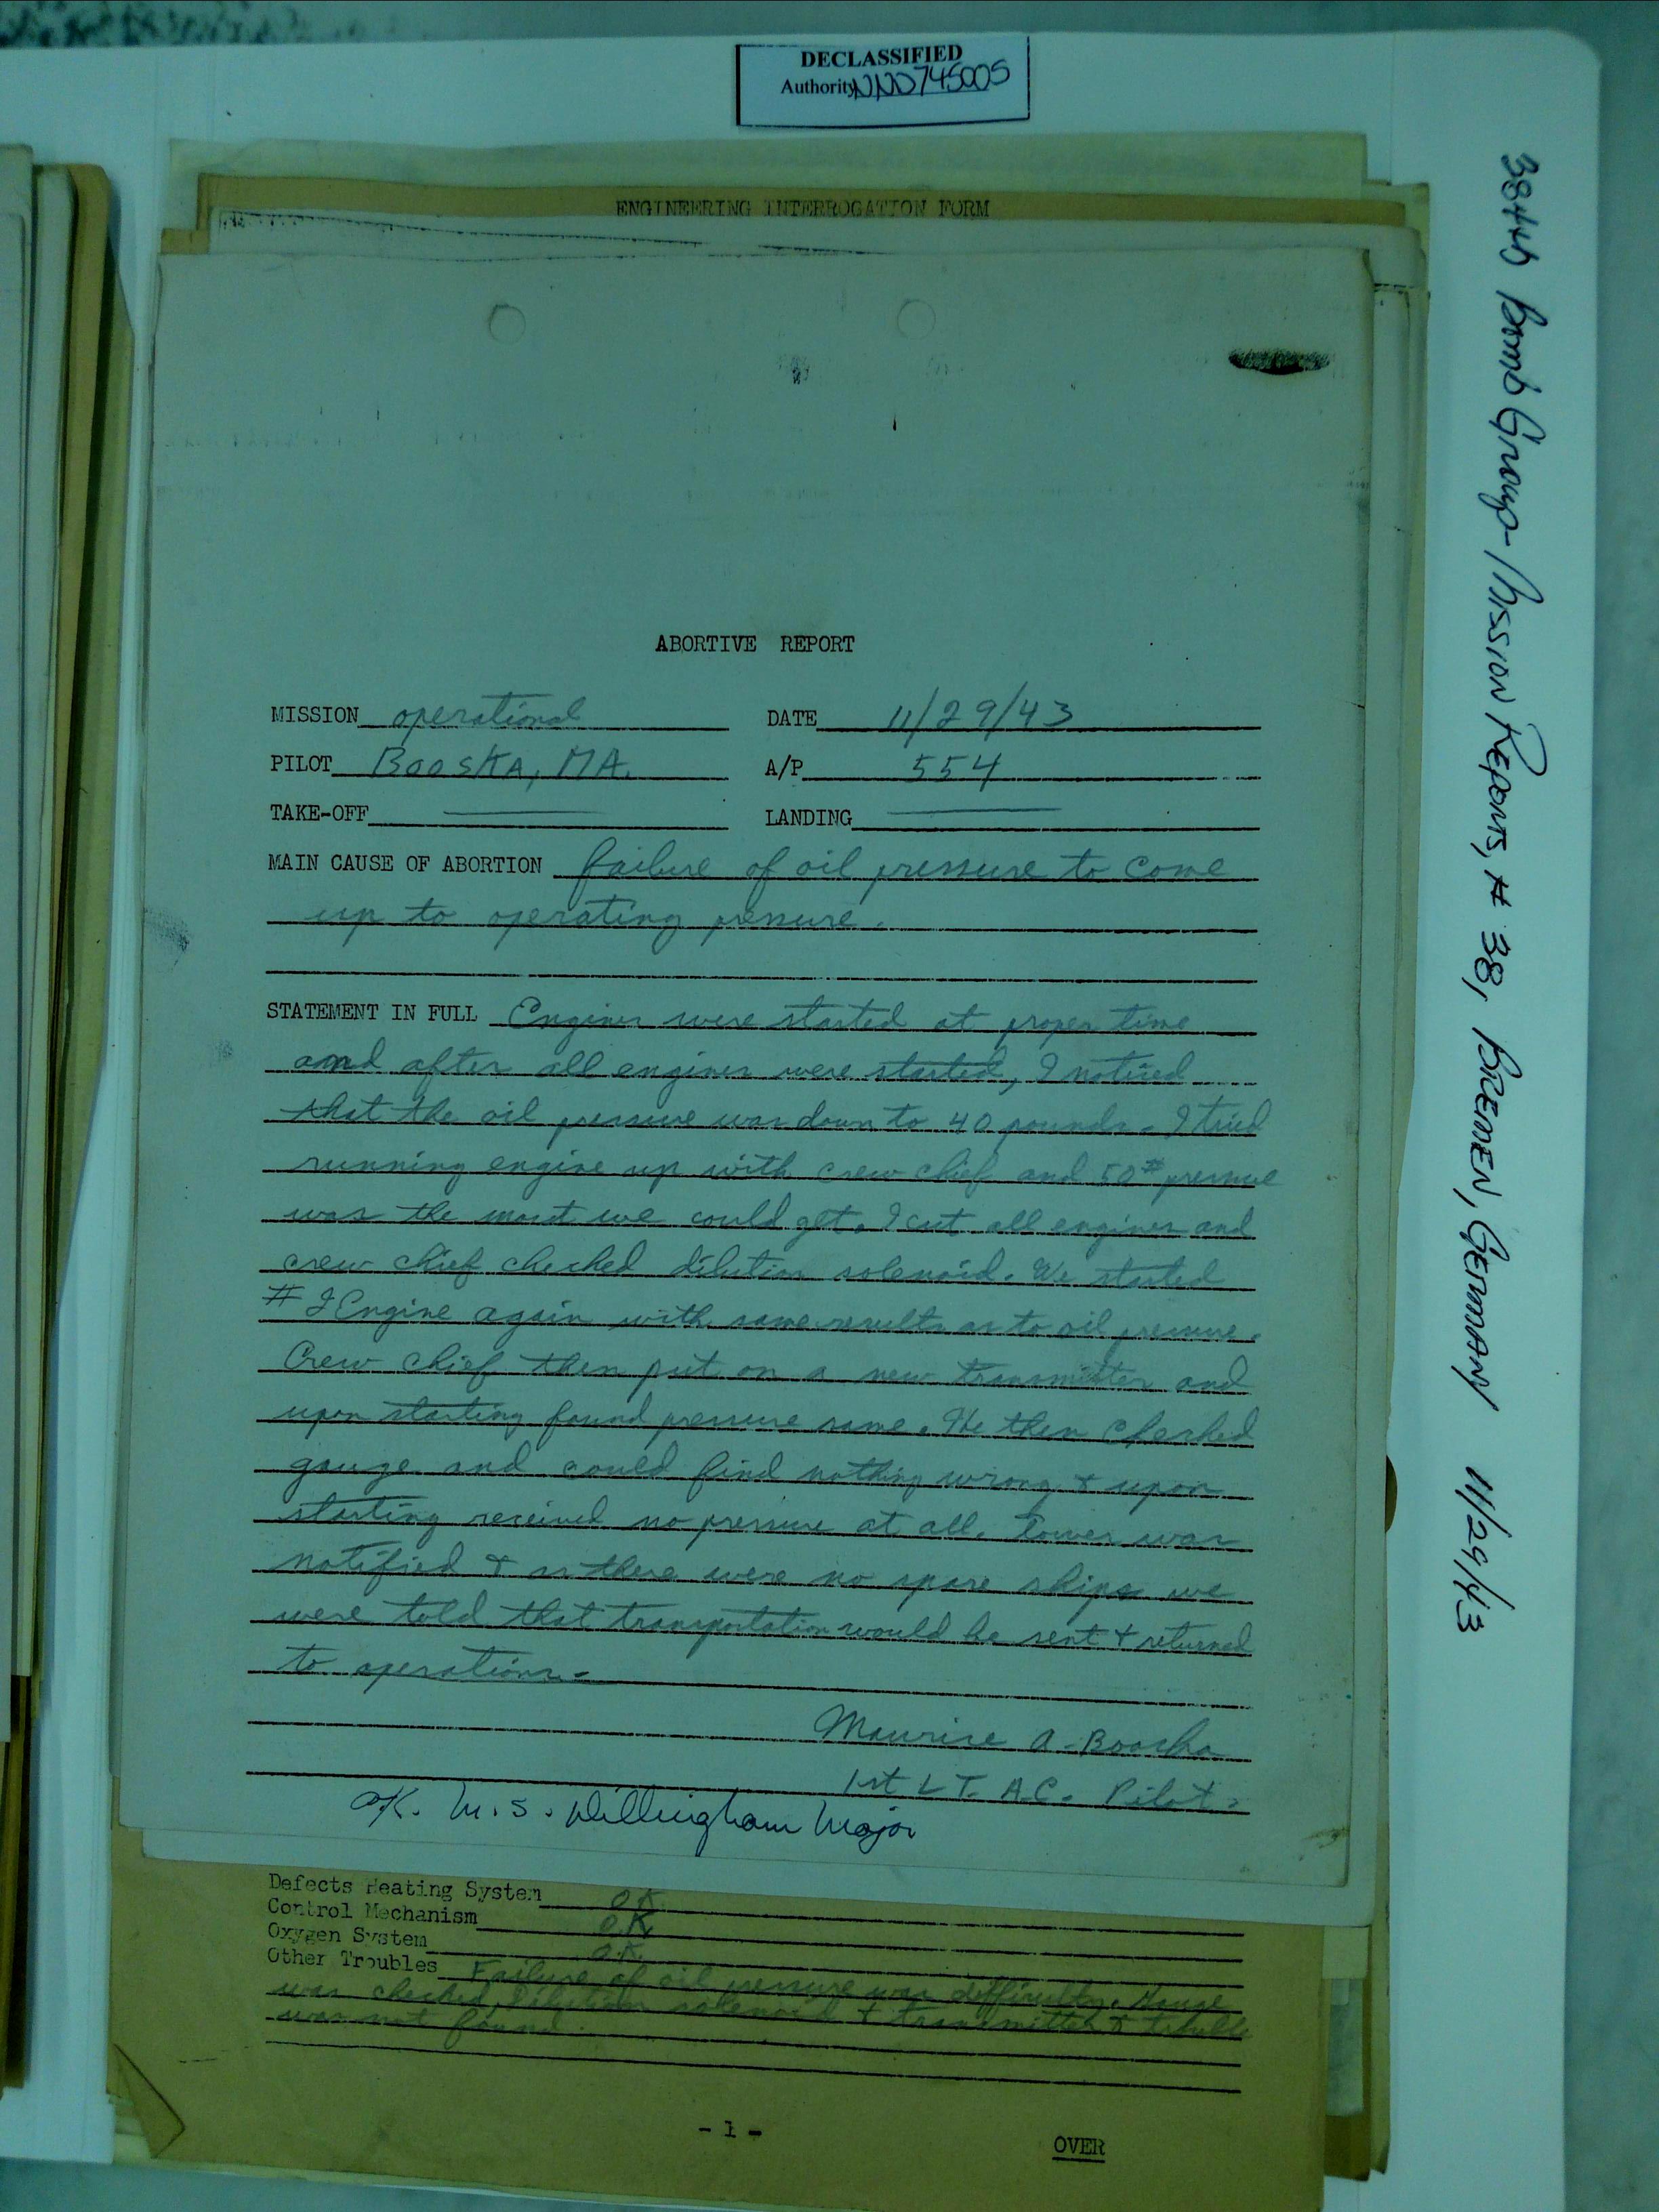 DECLASSIFIED
Authority NND745005
384th Bomb Group - Mission Reports, # 38, BREMEN, GERMANY 11/29/43
ENGINEERING INTERROGATION FORM
ABORTIVE REPORT
MISSION operational DATE 11/29/43
PILOT Booska, MA. A/P 554
TAKE-OFF LANDING
MAIN CAUSE OF ABORTION failure of oil pressure to come
up to operating pressure.
STATEMENT IN FULL Engines were started at proper time
and after all engines were started, I noticed
that the oil pressure was down to 40 pounds. I tried
running engine up with crew chief and 50# pressure
was the most we could get. I cut all engines and
crew chief checked dilution solenoid. We started
# Engine again with same results as to oil pressure.
Crew chief then put on a new transmitter and
upon starting found pressure same. He then checked
gauge and could find nothing wrong & upon
starting received no pressure at all. Tower was
notified & as there were no spare ships we
were told that transportation would be sent & returned
to operations.
Maurice A. Booska
1st LT. A.C. Pilot.
OK. M.S. Dillingham Major
Defects Heating System OK
Control Mechanism O.K.
Oxygen System O.K.
Other Troubles Failure of oil pressure was difficulty. Gauge
was checked, dilution solenoid & transmitter & trouble
was not found.
- 1 -
OVER